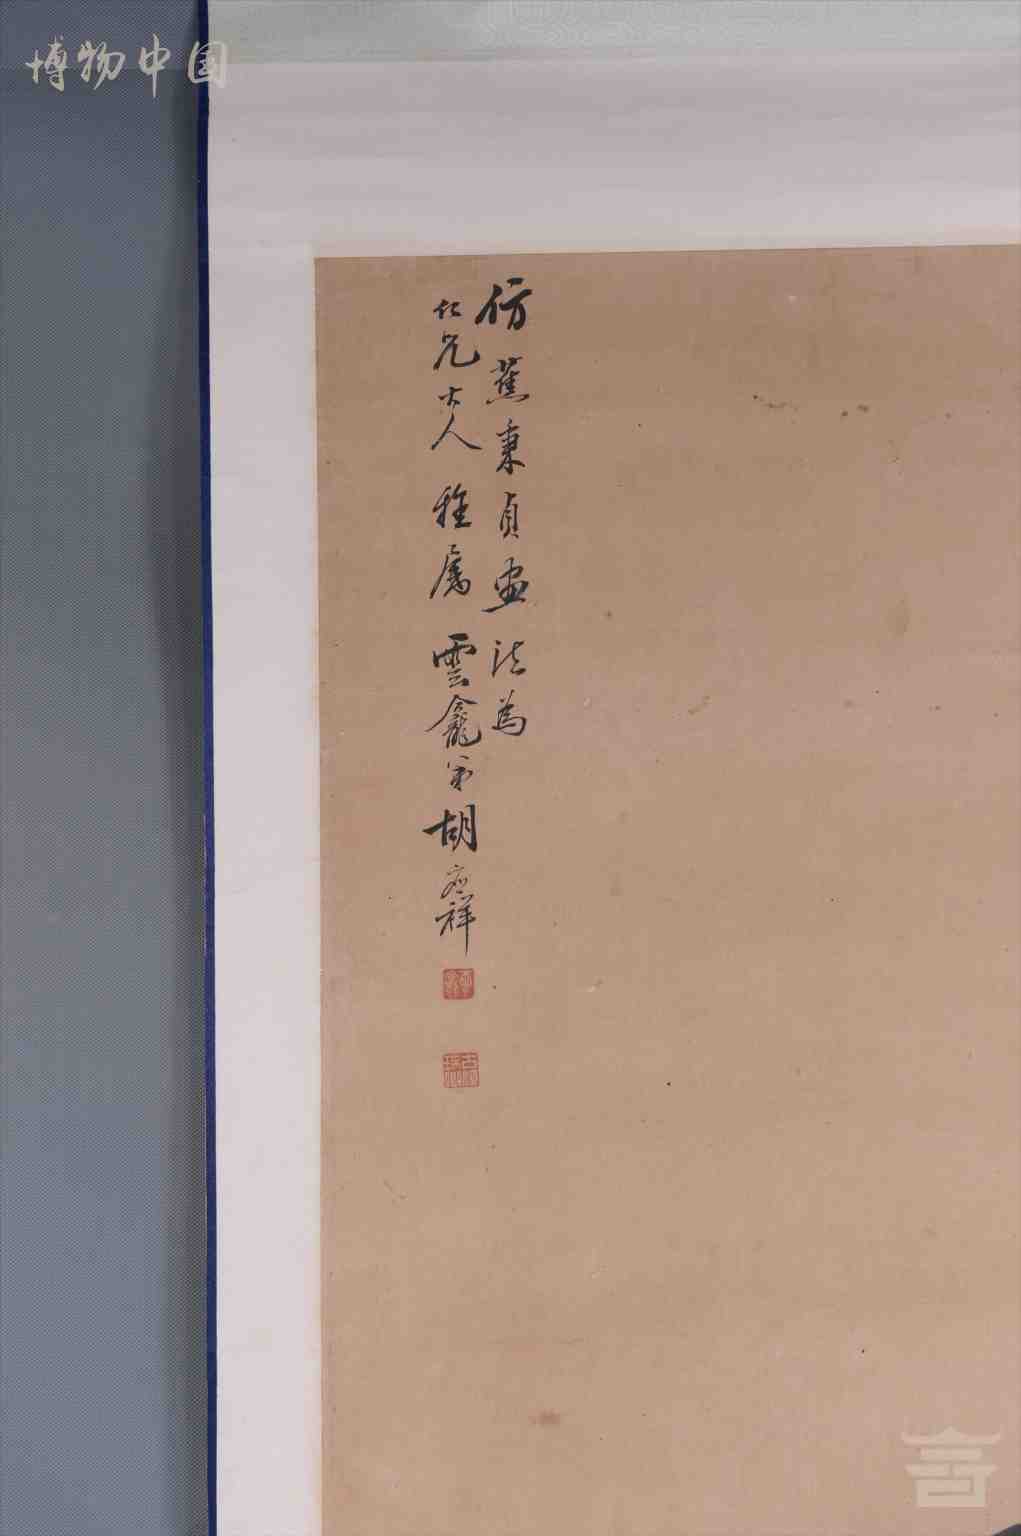 博物中国
仿蕉秉貞画法為
仁兄大人雅属 雲龕弟胡應祥